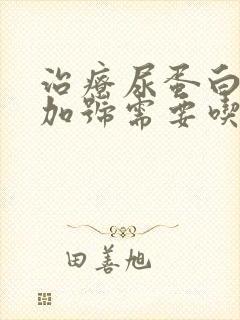 治療尿蛋白
加號需要喫
田善旭